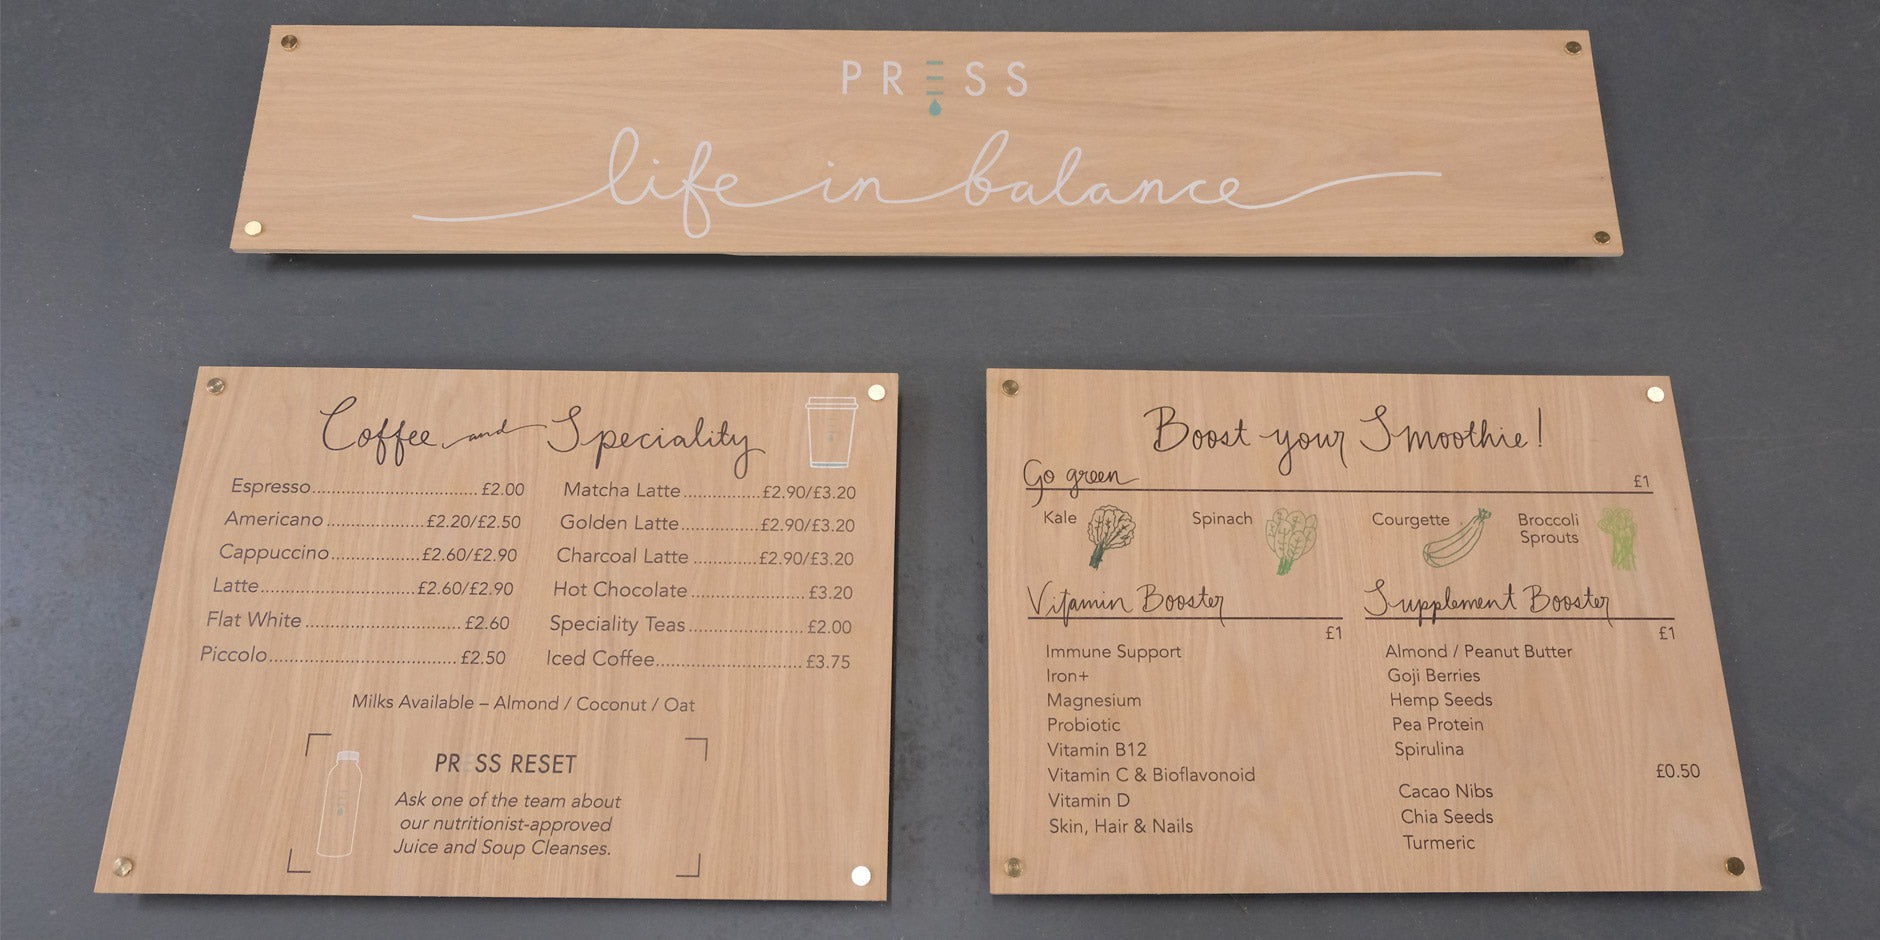 PRESS
life in balance
Coffee and Speciality
Espresso............................... £2.00
Americano ................. £2.20/£2.50
Cappuccino................ £2.60/£2.90
Latte........................... £2.60/£2.90
Flat White ............................ £2.60
Piccolo................................. £2.50
Matcha Latte.............. £2.90/£3.20
Golden Latte.............. £2.90/£3.20
Charcoal Latte ........... £2.90/£3.20
Hot Chocolate .................... £3.20
Speciality Teas .................... £2.00
Iced Coffee......................... £3.75
Milks Available – Almond / Coconut / Oat
PRESS RESET
Ask one of the team about
our nutritionist-approved
Juice and Soup Cleanses.
Boost your Smoothie!
Go green £1
Kale Spinach Courgette Broccoli
Sprouts
Vitamin Booster
£1
Immune Support
Iron+
Magnesium
Probiotic
Vitamin B12
Vitamin C & Bioflavonoid
Vitamin D
Skin, Hair & Nails
Supplement Booster
£1
Almond / Peanut Butter
Goji Berries
Hemp Seeds
Pea Protein
Spirulina
£0.50
Cacao Nibs
Chia Seeds
Turmeric